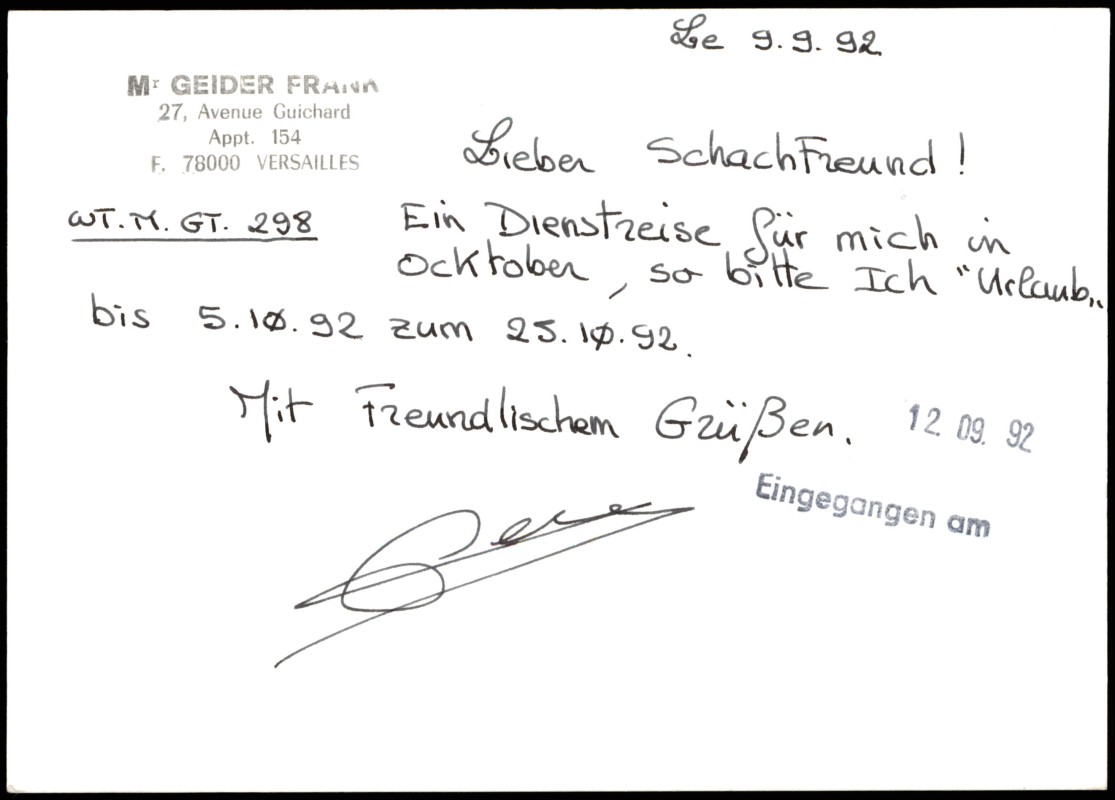 Le 9.9.92
Mr GEIDER FRANK
27, Avenue Guichard
Appt. 154
F. 78000 VERSAILLES
Lieber Schachfreund !
WT.M.GT. 298
Ein Dienstreise für mich in
Ocktober, so bitte Ich "Urlaub„
bis 5.10.92 zum 25.10.92.
Mit Freundlischem Grüßen.
12. 09. 92
Eingegangen am